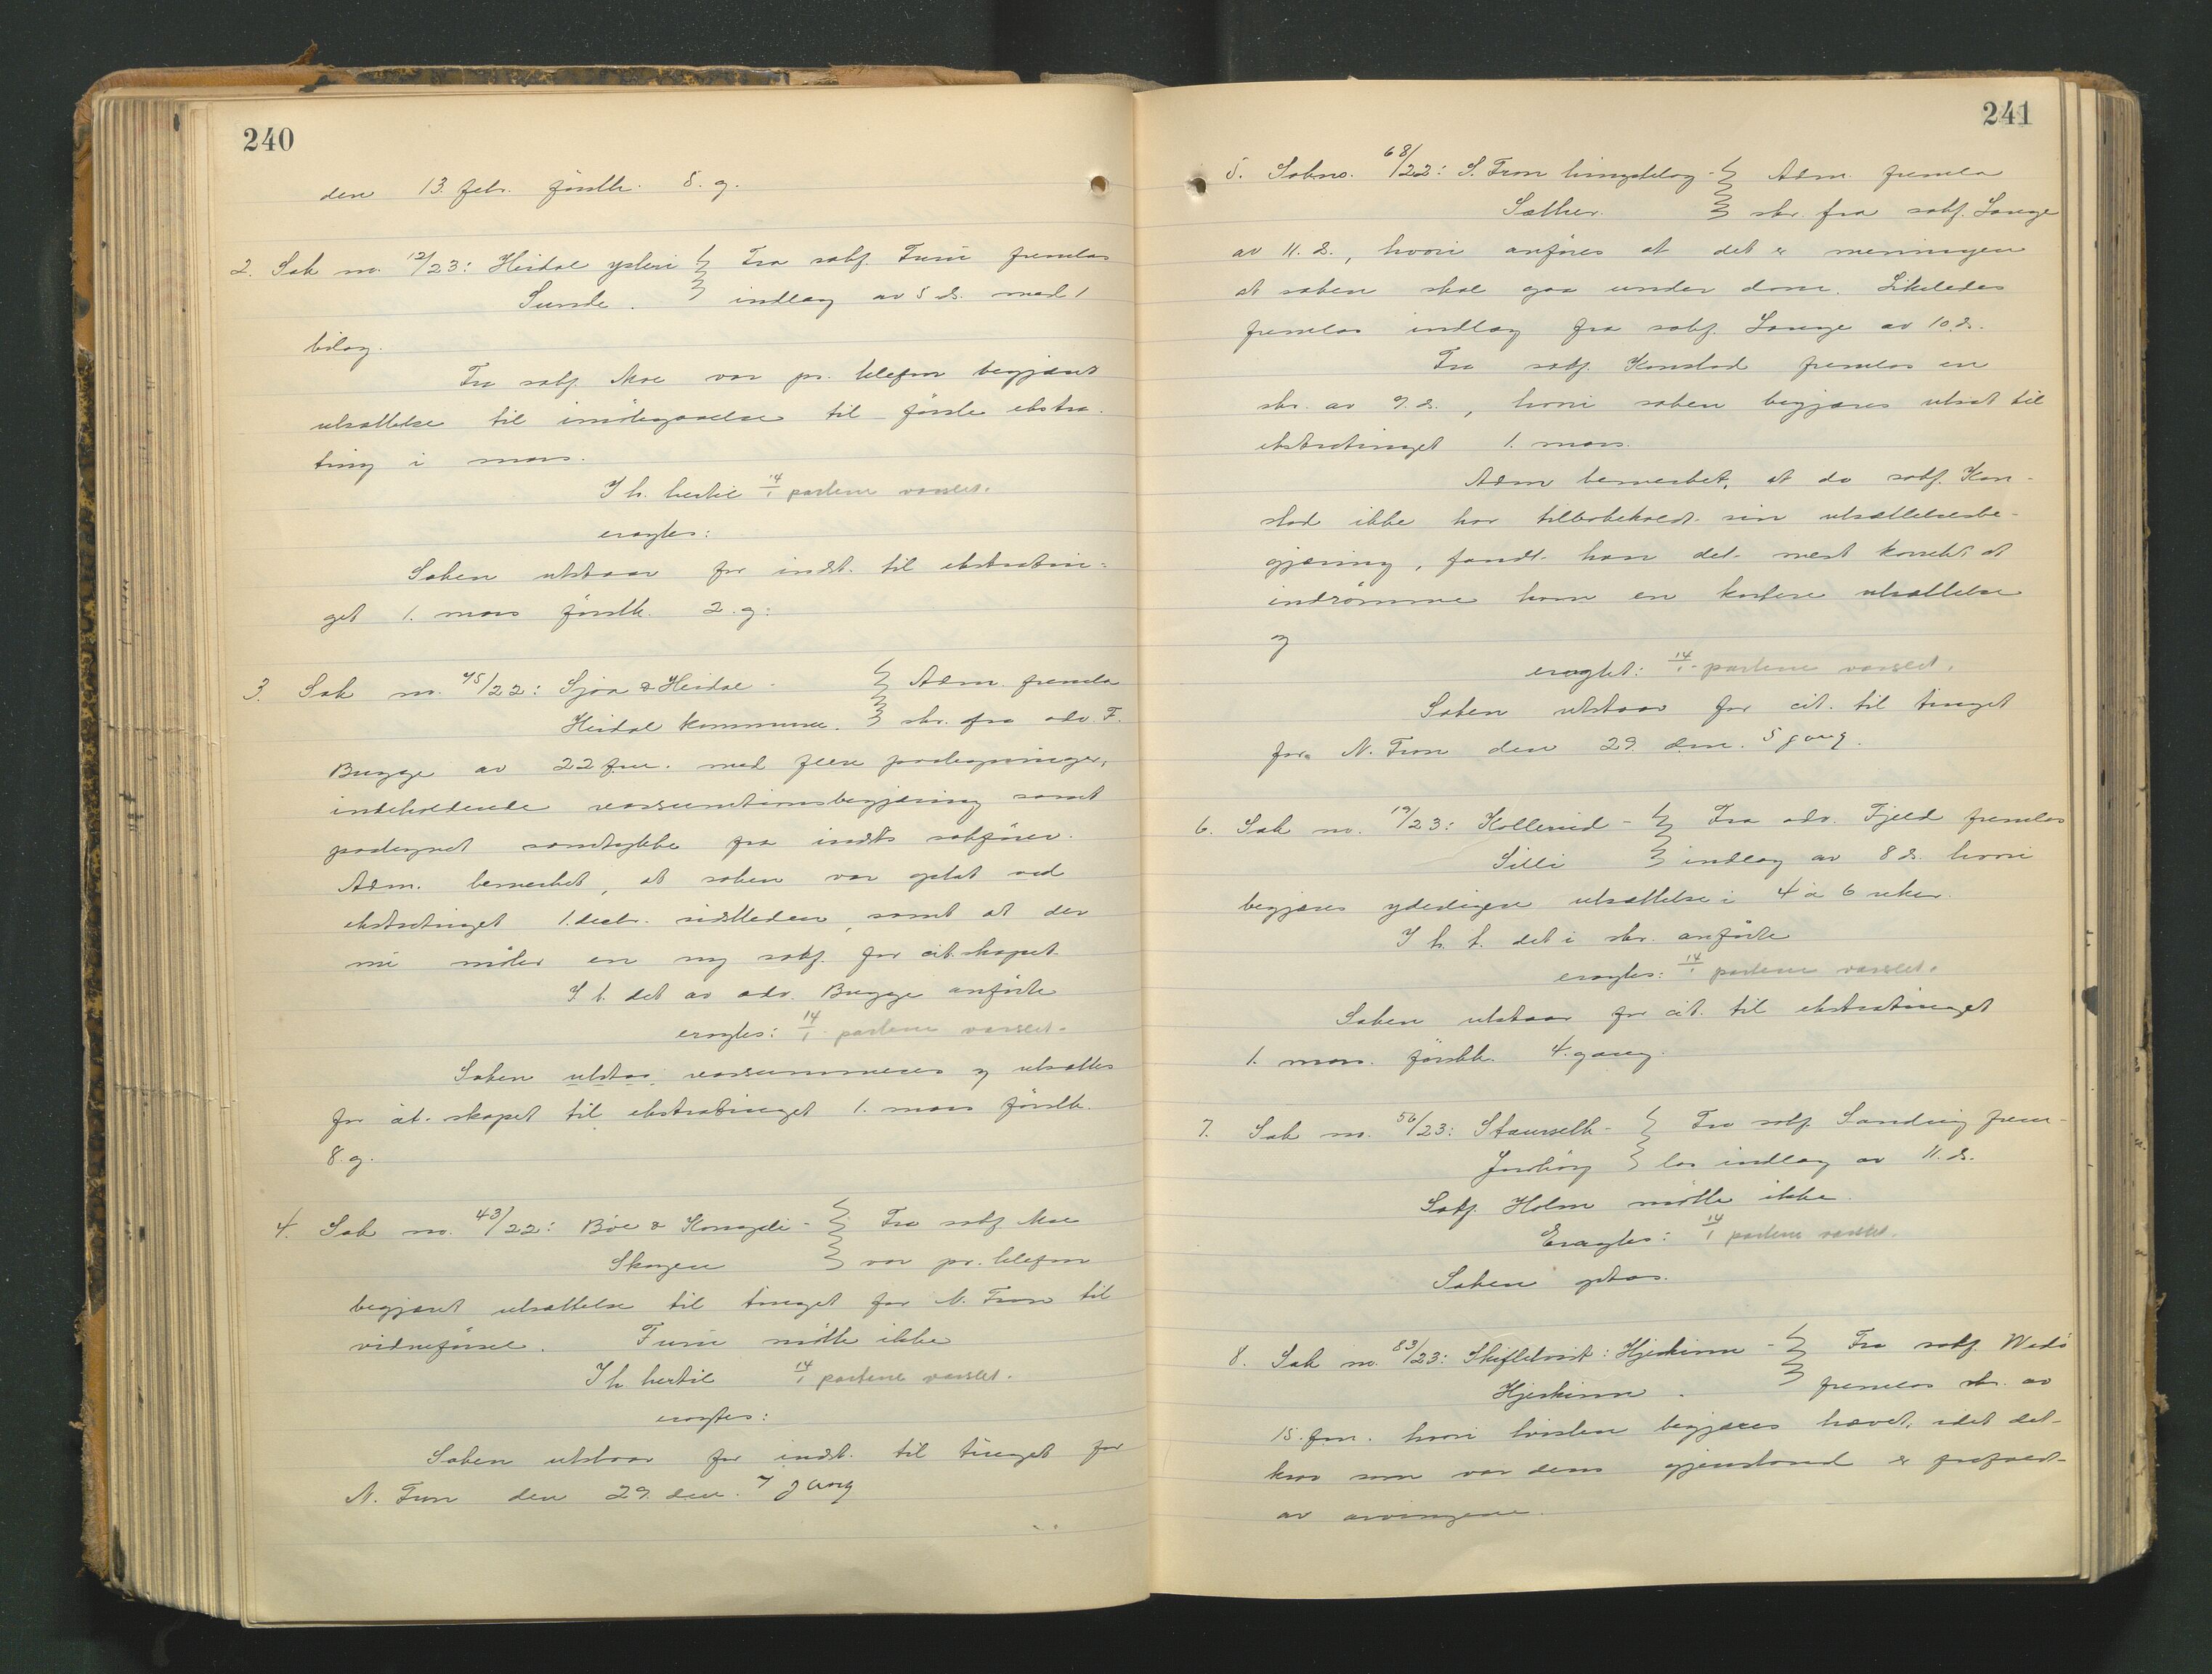 240
den 13. febr. førstk. 8. g.
2. Sak no. 12/23: Heidal ysteri } Fra sakf. Furu fremlas
Sunde. } indlæg av 5 ds. med 1
bilag.
Fra sakf. Moe var pr. telefon begjæret
utsættelse til imøtegaaelse til første ekstra-
ting i mars.
I h. hertil 14/1 partene varslet.
eragtes:
Saken utstaar for indst. til ekstratin-
get 1. mars førstk. 2. g.
3. Sak no. 45/22: Sjoa & Heidal - } Adm. fremla
Heidal kommune. } skr. fra adv. F.
Bugge av 22 fm. med flere paategninger,
indeholdende reassumtionsbegjæring samt
paategnet samtykke fra indsts sakfører.
Adm. bemerket, at saken var optat ved
ekstratinget 1. decbr. sidstleden, samt at der
nu møter en ny sakf. for cit.skapet.
I h. det av adv. Bugge anførte
eragtes: 14/1 partene varslet.
Saken utstaa reassummeres og utsættes
for cit.skapet til ekstratinget 1. mars førstk.
8. g.
4. Sak no. 43/22: Bøe & Kongsli - } Fra sakf. Moe
Skogen } var pr. telefon
begjæret utsættelse til tinget for N. Fron til
vidneførsel. Furu møtte ikke
I h. hertil 14/1 partene varslet.
eragtes:
Saken utstaar for indst. til tinget for
N. Fron den 29. dm. 7 gang
241
5. Sak no. 68/22: S. Fron - } Adm. fremla
Sæther. } skr. fra sakf. Lange
av 11. ds., hvori anføres at det er meningen
at saken skal gaa under dom. Likeledes
fremlas indlæg fra sakf. Lange av 10. ds.
Fra sakf. Konstad fremlas en
skr. av 9. ds., hvori saken begjæres utsat til
ekstratinget 1. mars.
Adm bemerket, at da sakf. Kon-
stad ikke har tilbakekaldt sin utsættelsesbe-
gjæring, fandt han det mest korrekt at
indrømme ham en kortere utsættelse
og
eragtet: 14/1 partene varslet.
Saken utstaar for cit. til tinget
for N. Fron den 29 dm. 5 gang.
6. Sak no. 19/23: Kollerud - } Fra adv. Fjeld fremlas
Silli } indlæg av 8 ds. hvori
begjæres yderligere utsættelse i 4 a 6 uker.
I h. t. det i skr. anførte
eragtes: 14/1 partene varslet.
Saken utstaar for cit. til ekstratinget
1. mars. førstk. 4. gang.
7. Sak no. 56/23: - } Fra sakf. Sandvig frem-
} las indlæg av 11. ds.
Sakf. Holm møtte ikke.
Eragtes: 14/1 partene varslet.
Saken optas.
8. Sak no. 83/23: Skiftetvist: Hjerkinn - } Fra sakf.
Hjerkinn. } fremlas skr. av
15. fm. hvori tvisten begjæres hævet, idet det
krav som var dens gjenstand er frafaldt
av arvingene.